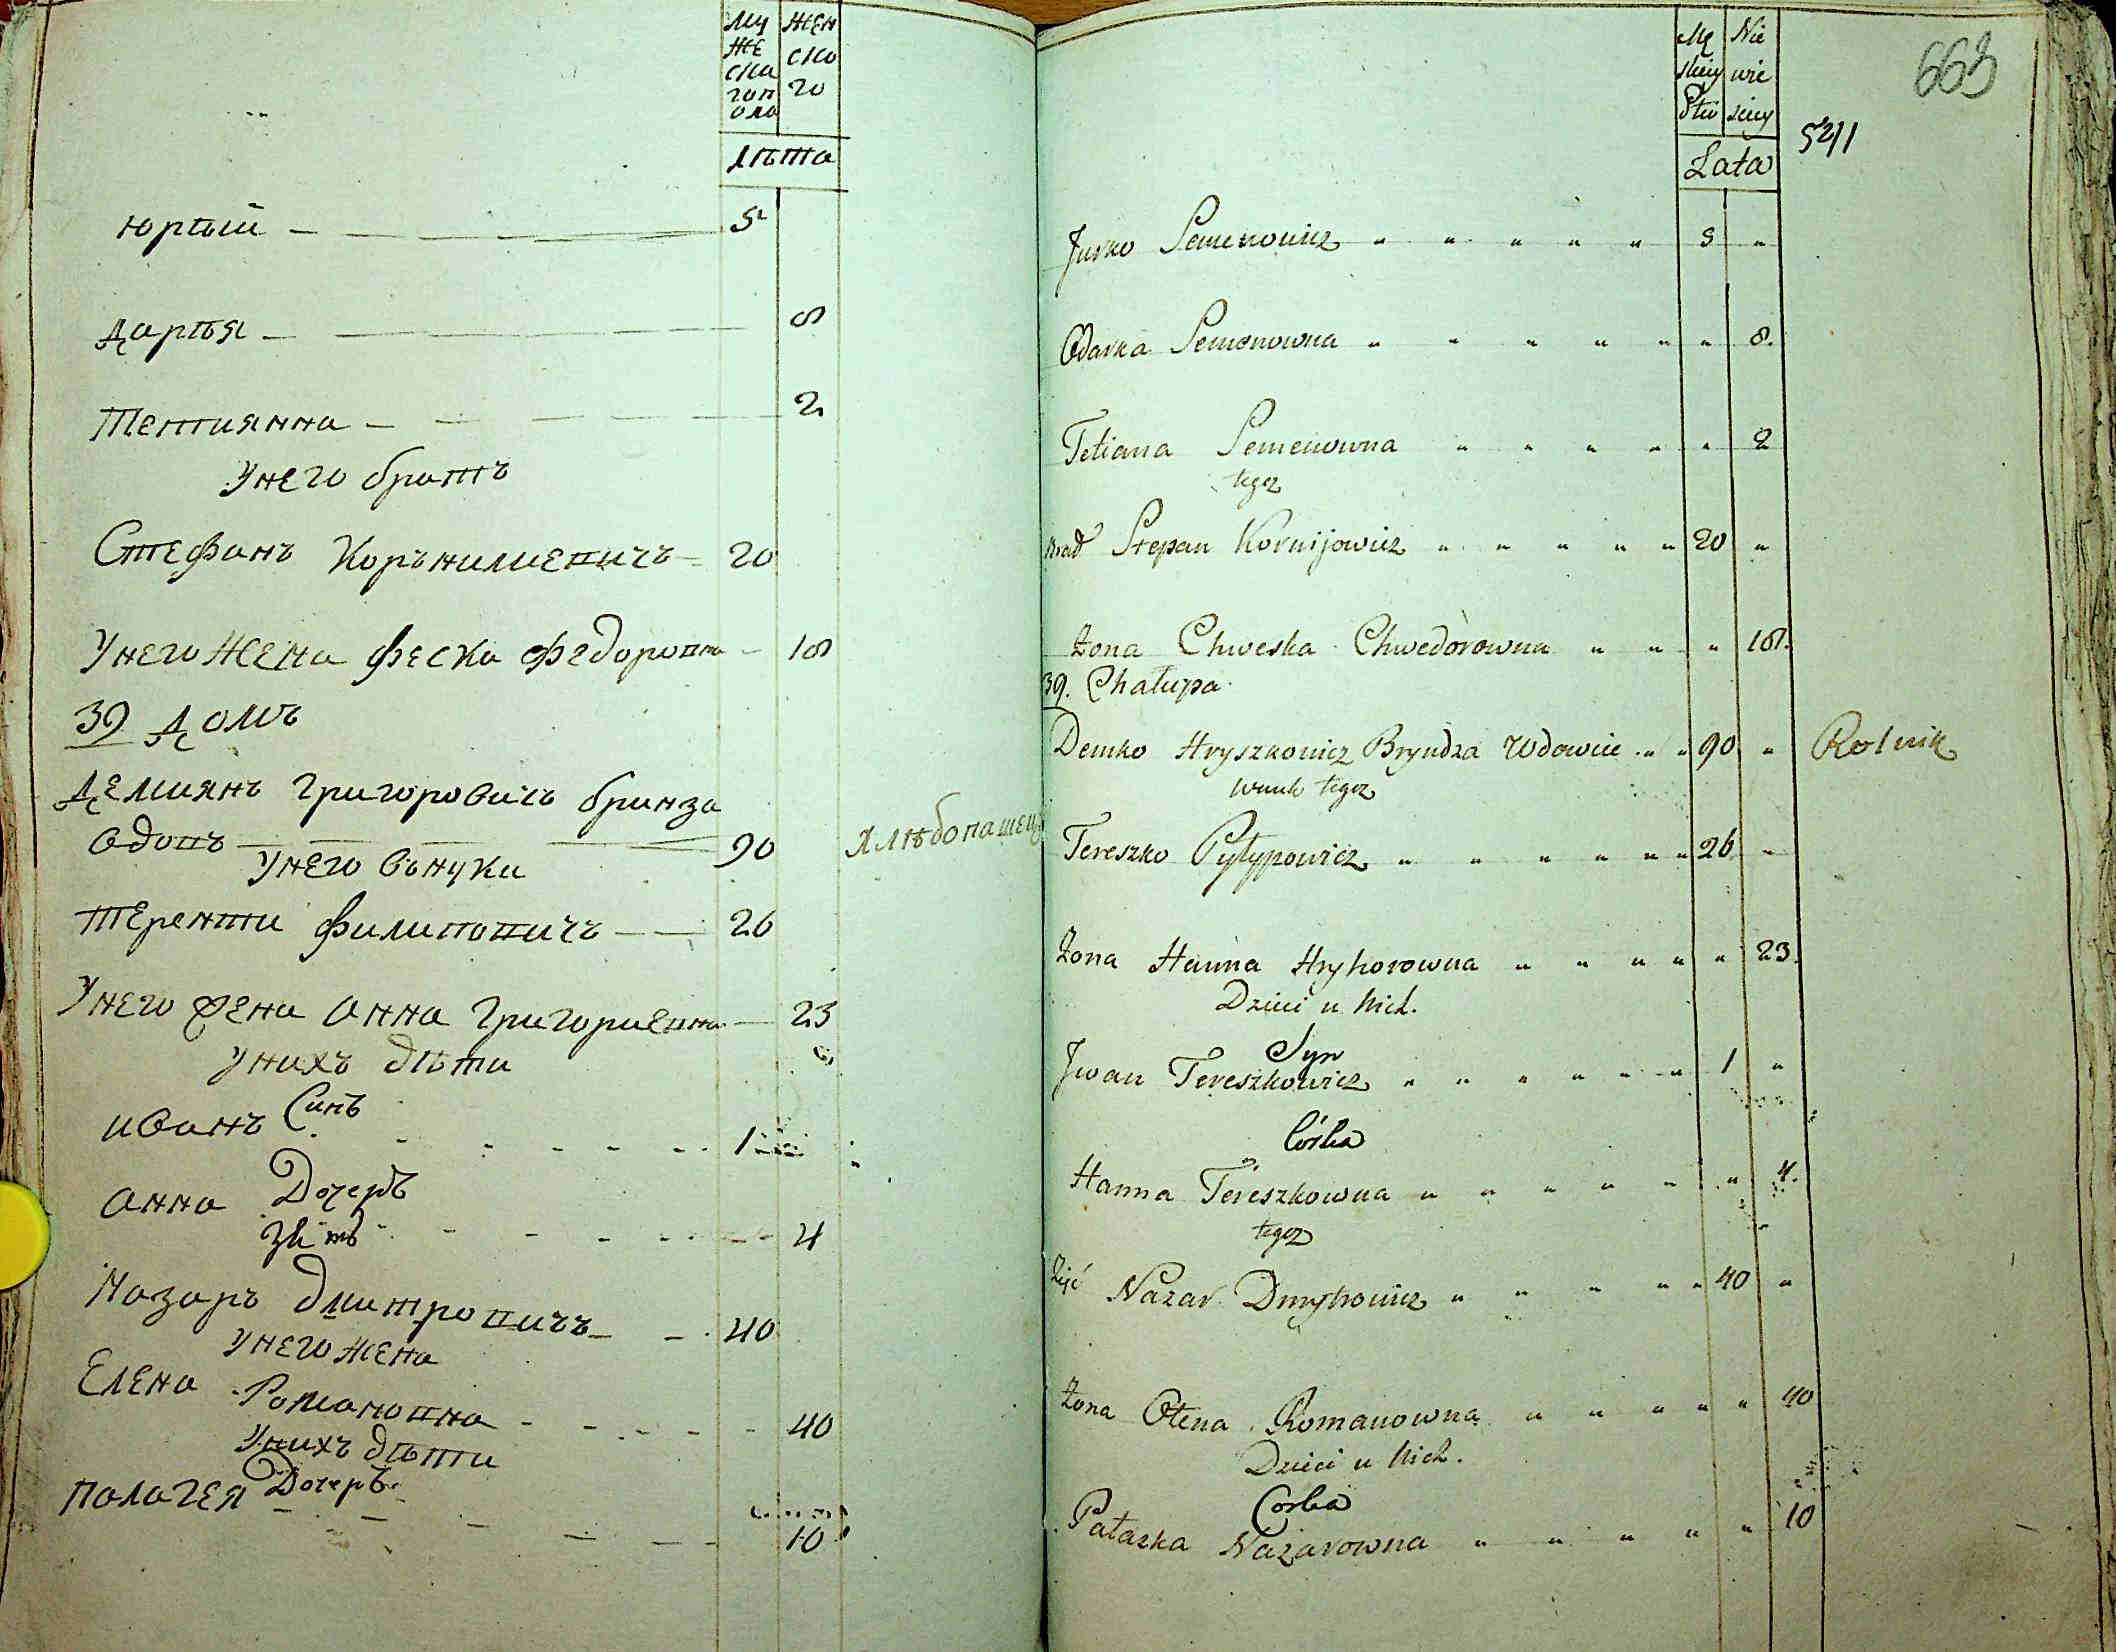 МУ ЖЕ СКА ГОП ОЛА
ЖЕН СКО ГО
лѣта
юрѣй 5
Дарѣя 8
Тетиянна 2
Унего братъ
Стефанъ Корънилиевичъ 20
Унего жена феска Федоровна 18
39 Домъ
Демиянъ григоровичь бринза
вдовъ 90 хлѣбопашецъ
Унего вънуки
Терентии филиповичъ 26
Унего жена Анна григориевна 23
Унихъ дѣти
Синъ
иванъ 1
Дочеръ
Анна 4
зять
Назаръ дмитровичъ 40
Унего жена
Елена Романовна 40
Унихъ дѣти
Дочеръ
палагея 10
663
Mę skiey Płci
Nie wie sciey
Lata
521
Jurko Semenowicz 5
Odarka Semenowna 8.
Tetiana Semenowna 2
tegoz
brat Stepan Kornijowicz 20
żona Chweska Chwedorowna 18.
39. Chałupa
Demko Hryszkowicz Bryndza Wdowiec 90 Rolnik
wnuk tegoz
Tereszko Pyłypowicz 26
żona Hanna Hryhorowna 23.
Dzieci u nich.
Syn
Jwan Tereszkowicz 1
Córka
Hanna Tereszkowna 4.
tegoz
Zięć Nazar Dmytrowicz 40
żona Ołena Romanowna 40
Dzieci u nich.
Corka
Pałazka Nazarowna 10